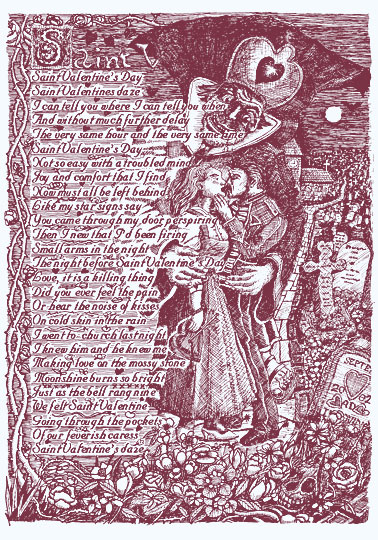 Saint
Saint Valentine's Day
Saint Valentines daze
I can tell you where I can tell you when
And without much further delay
The very same hour and the very same time
Saint Valentine's Day
Not so easy with a troubled mind
Joy and comfort that I find
Now must all be left behind
Like my star signs say
You came through my door perspiring
Then I new that I'd been firing
Small arms in the night
The night before Saint Valentine's Day
Love, it is a killing thing
Did you ever feel the pain
Or hear the noise of kisses
On cold skin in the rain
I went to church last night
I knew him and he knew me
Making love on the mossy stone
Moonshine burns so bright
Just as the bell rang nine
We felt Saint Valentine
Going through the pockets
Of our feverish caress
Saint Valentine's daze
SEPTE